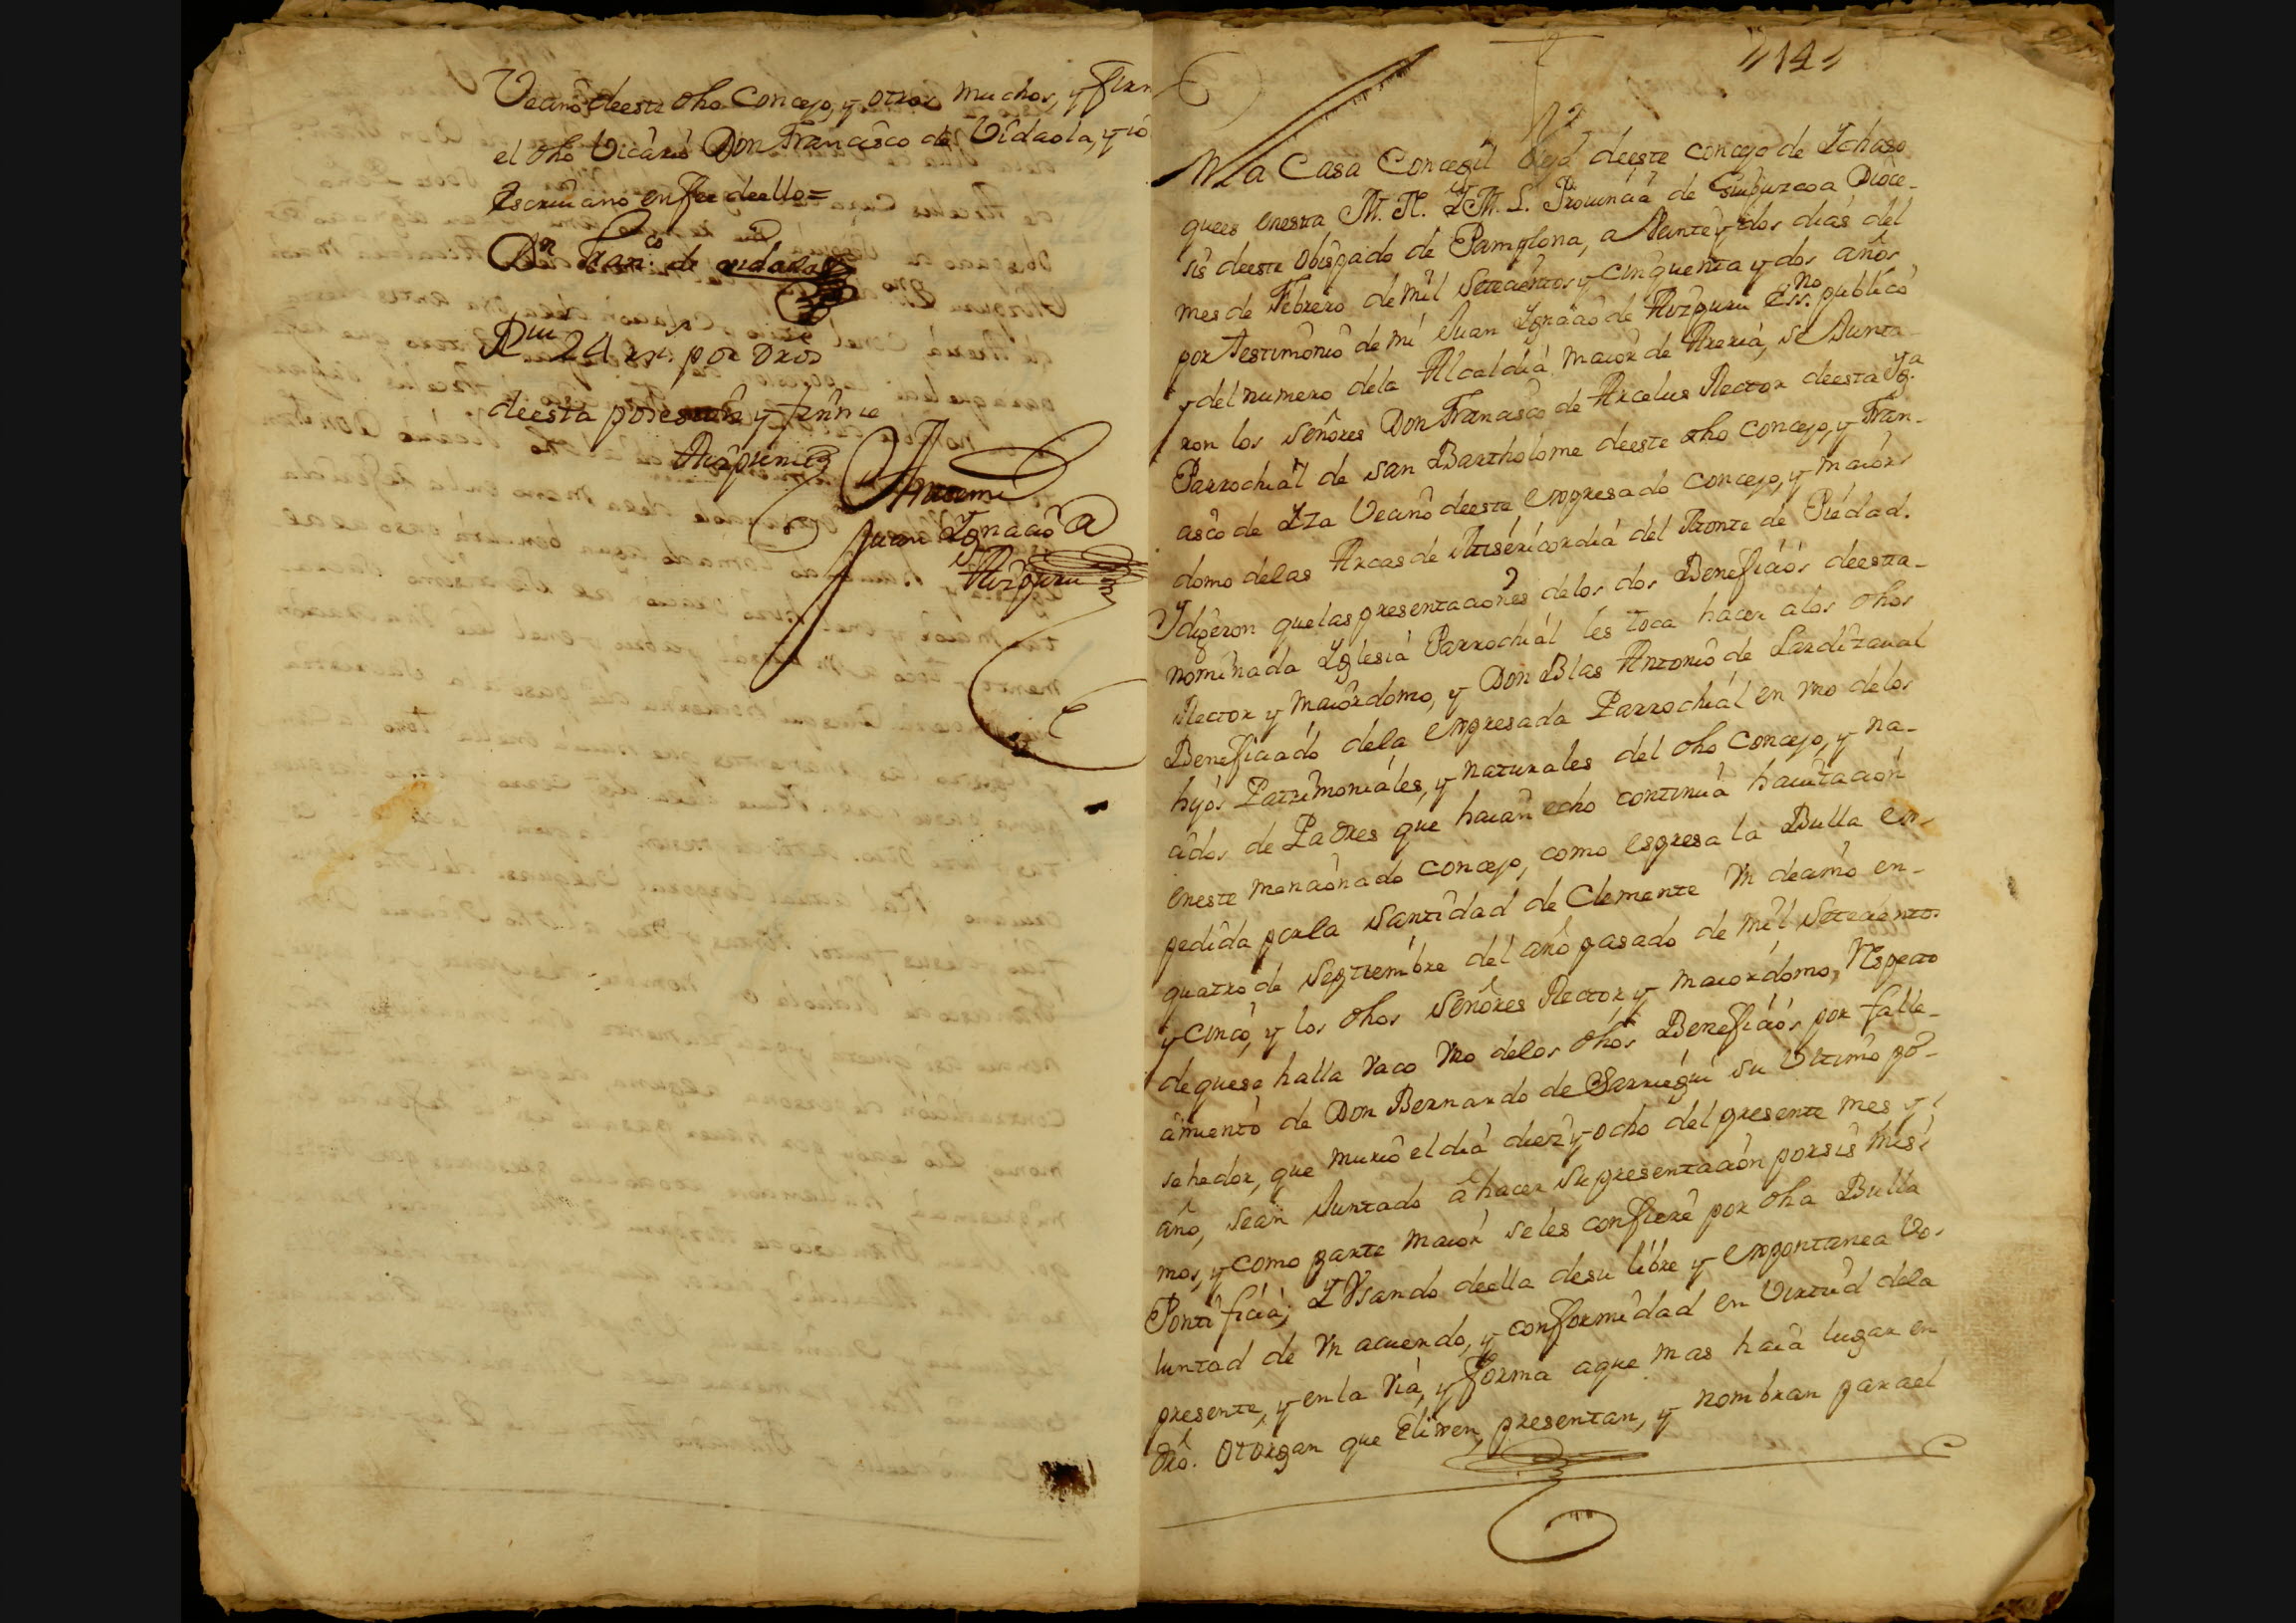 Vecino deeste dho Concejo, y otros muchos, y firm
el dho Vicario Don Francisco de Vidaola, y io
Escriuano en fee deello=
Dn Franco. de vidaola
Rui 24 rrs. por dros
deesta posesion y
Aizpuru
Antemi
Juan Ygnacio de
Aizpuru
14
En la Casa Concegil deeste concejo de Ychaso
quees enesta M. N. Y M. L. Prouincia de Guipuzcoa Dioce-
sis deeste Obispado de Pamplona, a Veinte y dos dias del
mes de Febrero de mil setecientos y cinquenta y dos años
por testimonio de mi Juan Ygnacio de Aizpuru Essno. publico
y del numero dela Alcaldia maior de Areria, se Junta-
ron los señores Don Francisco de Arcelus Rector deesta Yga.
Parrochial de san Bartholome deeste dho concejo, y Fran-
cisco de Yza Vecino deeste expresado concejo, y maior-
domo delas Arcas de Misericordia del Monte de Piedad.
Y digeron que las presentaciones delos dos Beneficios deesta
nominada Yglesia Parrochial les toca hacer alos dhos
Rector y maiordomo, y Don Blas Antonio de Lardizaual
Beneficiado dela expresada Parrochial en vno delos
hijos Patrimoniales, y naturales del dho concejo, y na-
cidos de Padres que haian echo continua hauitacion
eneste mencionado concejo, como espresa la Bulla ex-
pedida porla santidad de Clemente Vndecimo en-
quatro de septiembre del año pasado de mil setecientos
y cinco, y los dhos señores Rector, y maiordomo, Respecto
deque se halla vaco vno delos dhos Beneficios por falle-
cimiento de Don Bernardo de Sarriegui su Vltimo po-
sehedor, que murio el dia diez y ocho del presente mes y
año, sean Juntado â hacer su presentacion porsis mis-
mos, y como parte maior seles confiere por dha Bulla
Pontificia; Y Vsando deella desu libre y expontanea Vo-
luntad de vn acuerdo, y conformidad en Virtud dela
presente, y en la via, y forma aque mas haia lugar en
dro. Otorgan que Elixen, presentan, y nombran parael